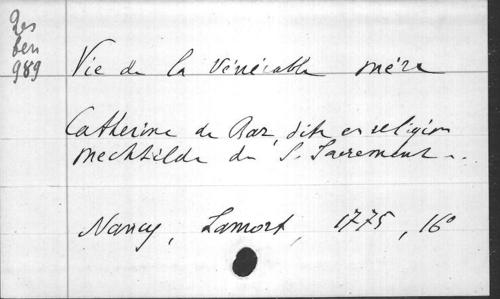 Res
ben
989
Vie de la Vénérable mère
Catherine de Bar, dite en religion
Mechtilde du S. Sacrement..
Nancy, Lamort, 1775, 16°